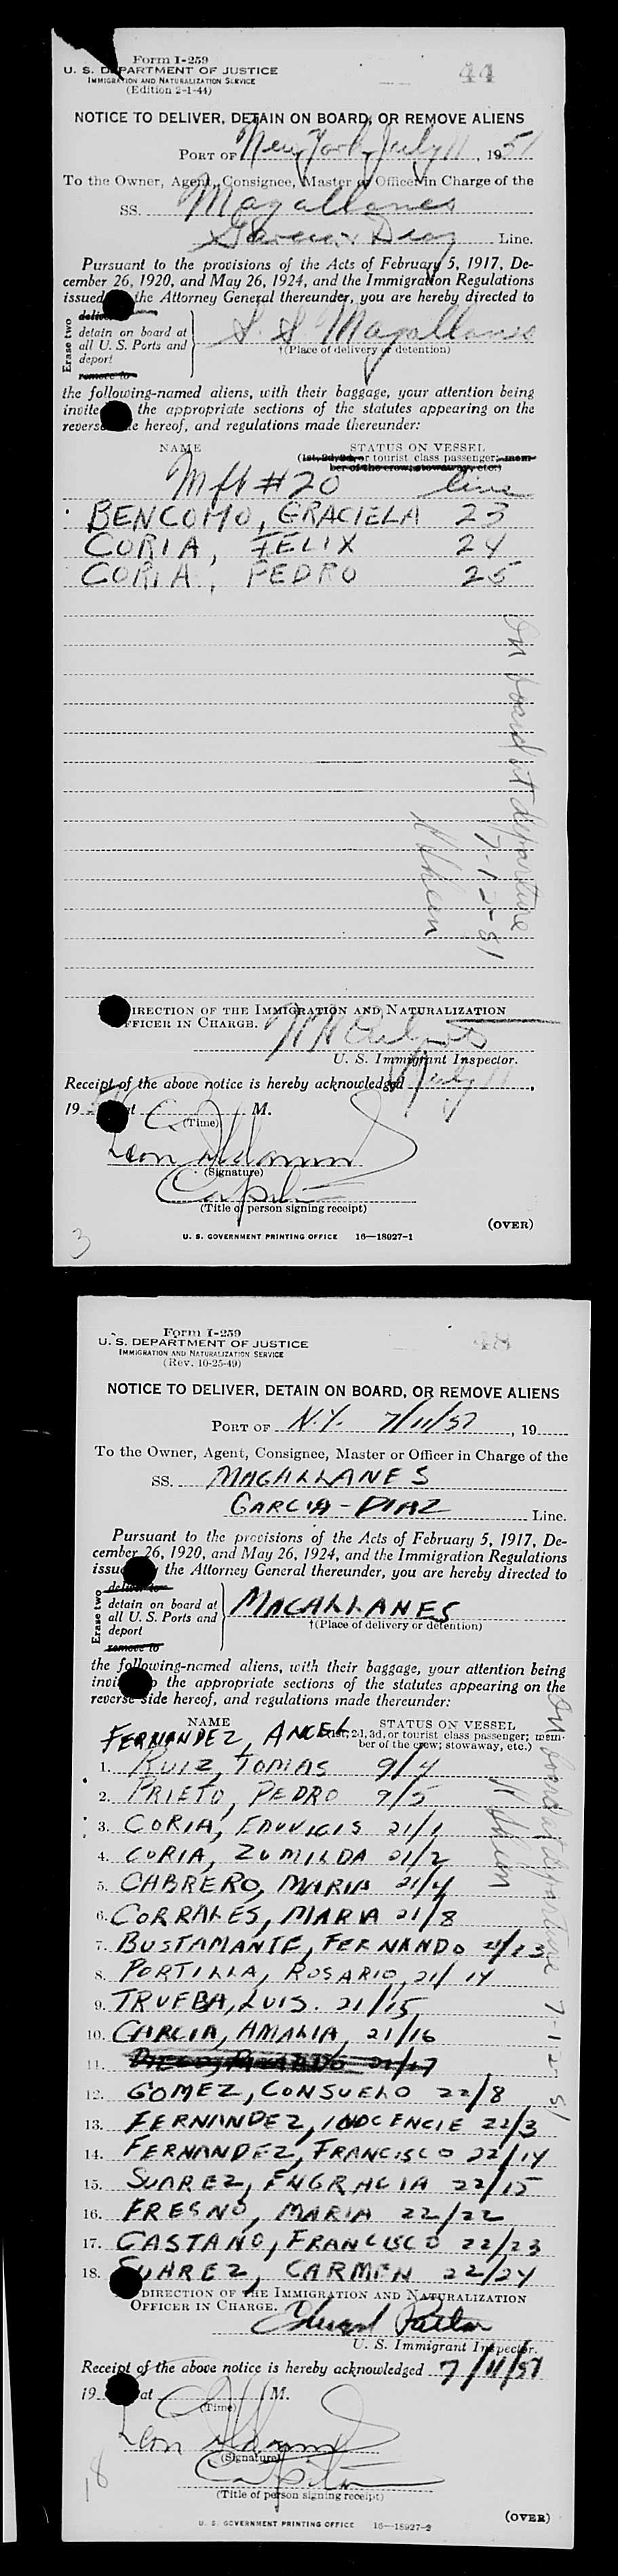 Form I-259
44
U. S. DEPARTMENT OF JUSTICE
IMMIGRATION AND NATURALIZATION SERVICE
(Edition 2-1-44)
NOTICE TO DELIVER, DETAIN ON BOARD, OR REMOVE ALIENS
PORT OF New York July 11, 1951
To the Owner, Agent, Consignee, Master or Officer in Charge of the
SS. Magallanes
Garcia Diaz Line.
Pursuant to the provisions of the Acts of February 5, 1917, De-
cember 26, 1920, and May 26, 1924, and the Immigration Regulations
issued the Attorney General thereunder, you are hereby directed to
Erase two
deliver
detain on board at
all U. S. Ports and
deport
remove to
S. S Magallanes
†(Place of delivery or detention)
the following-named aliens, with their baggage, your attention being
invite the appropriate sections of the statutes appearing on the
reverse hereof, and regulations made thereunder:
NAME STATUS ON VESSEL
(1st, 2d, 3d, or tourist class passenger; mem-
ber of the crew; stowaway, etc.)
Mft #20 line
BENCOMO, GRACIELA 23
CORIA, FELIX 24
CORIA, PEDRO 25
On board at departure
7-12-51
DIRECTION OF THE IMMIGRATION AND NATURALIZATION
OFFICER IN CHARGE.
U. S. Immigrant Inspector.
Receipt of the above notice is hereby acknowledged July 11,
19 at M.
(Time)
(Signature)
(Title of person signing receipt)
(OVER)
3
U. S. GOVERNMENT PRINTING OFFICE 16—18027-1
Form I-259
48
U. S. DEPARTMENT OF JUSTICE
IMMIGRATION AND NATURALIZATION SERVICE
(Rev. 10-25-49)
NOTICE TO DELIVER, DETAIN ON BOARD, OR REMOVE ALIENS
PORT OF N.Y. 7/11/51, 19
To the Owner, Agent, Consignee, Master or Officer in Charge of the
SS. MAGALLANES
GARCIA-DIAZ Line.
Pursuant to the provisions of the Acts of February 5, 1917, De-
cember 26, 1920, and May 26, 1924, and the Immigration Regulations
issued the Attorney General thereunder, you are hereby directed to
Erase two
deliver to
detain on board at
all U. S. Ports and
deport
remove to
MAGALLANES
†(Place of delivery or detention)
the following-named aliens, with their baggage, your attention being
invi the appropriate sections of the statutes appearing on the
reverse side hereof, and regulations made thereunder:
NAME STATUS ON VESSEL
(1st, 2d, 3d, or tourist class passenger; mem-
ber of the crew; stowaway, etc.)
FERNANDEZ, ANGEL
1. RUIZ, TOMAS 9/4
2. PRIETO, PEDRO 9/5
3. CORIA, EDUVIGIS 21/1
4. CORIA, ZUMILDA 21/2
5. CABRERO, MARIA 21/4
6. CORRALES, MARIA 21/8
7. BUSTAMANTE, FERNANDO 21/13
8. PORTILLA, ROSARIO, 21/14
9. TRUEBA, LUIS. 21/15
10. GARCIA, AMALIA, 21/16
11. 21/17
12. GOMEZ, CONSUELO 22/8
13. FERNANDEZ, INOCENCIE 22/3
14. FERNANDEZ, FRANCISCO 22/14
15. SUAREZ, ENGRACIA 22/15
16. FRESNO, MARIA 22/22
17. CASTANO, FRANCISCO 22/23
18. SUAREZ, CARMEN 22/24
On board at departure 7-12-51
DIRECTION OF THE IMMIGRATION AND NATURALIZATION
OFFICER IN CHARGE.
U. S. Immigrant Inspector.
Receipt of the above notice is hereby acknowledged 7/11/51
19 at M.
(Time)
(Signature)
(Title of person signing receipt)
18
(OVER)
U. S. GOVERNMENT PRINTING OFFICE 16—18027-2